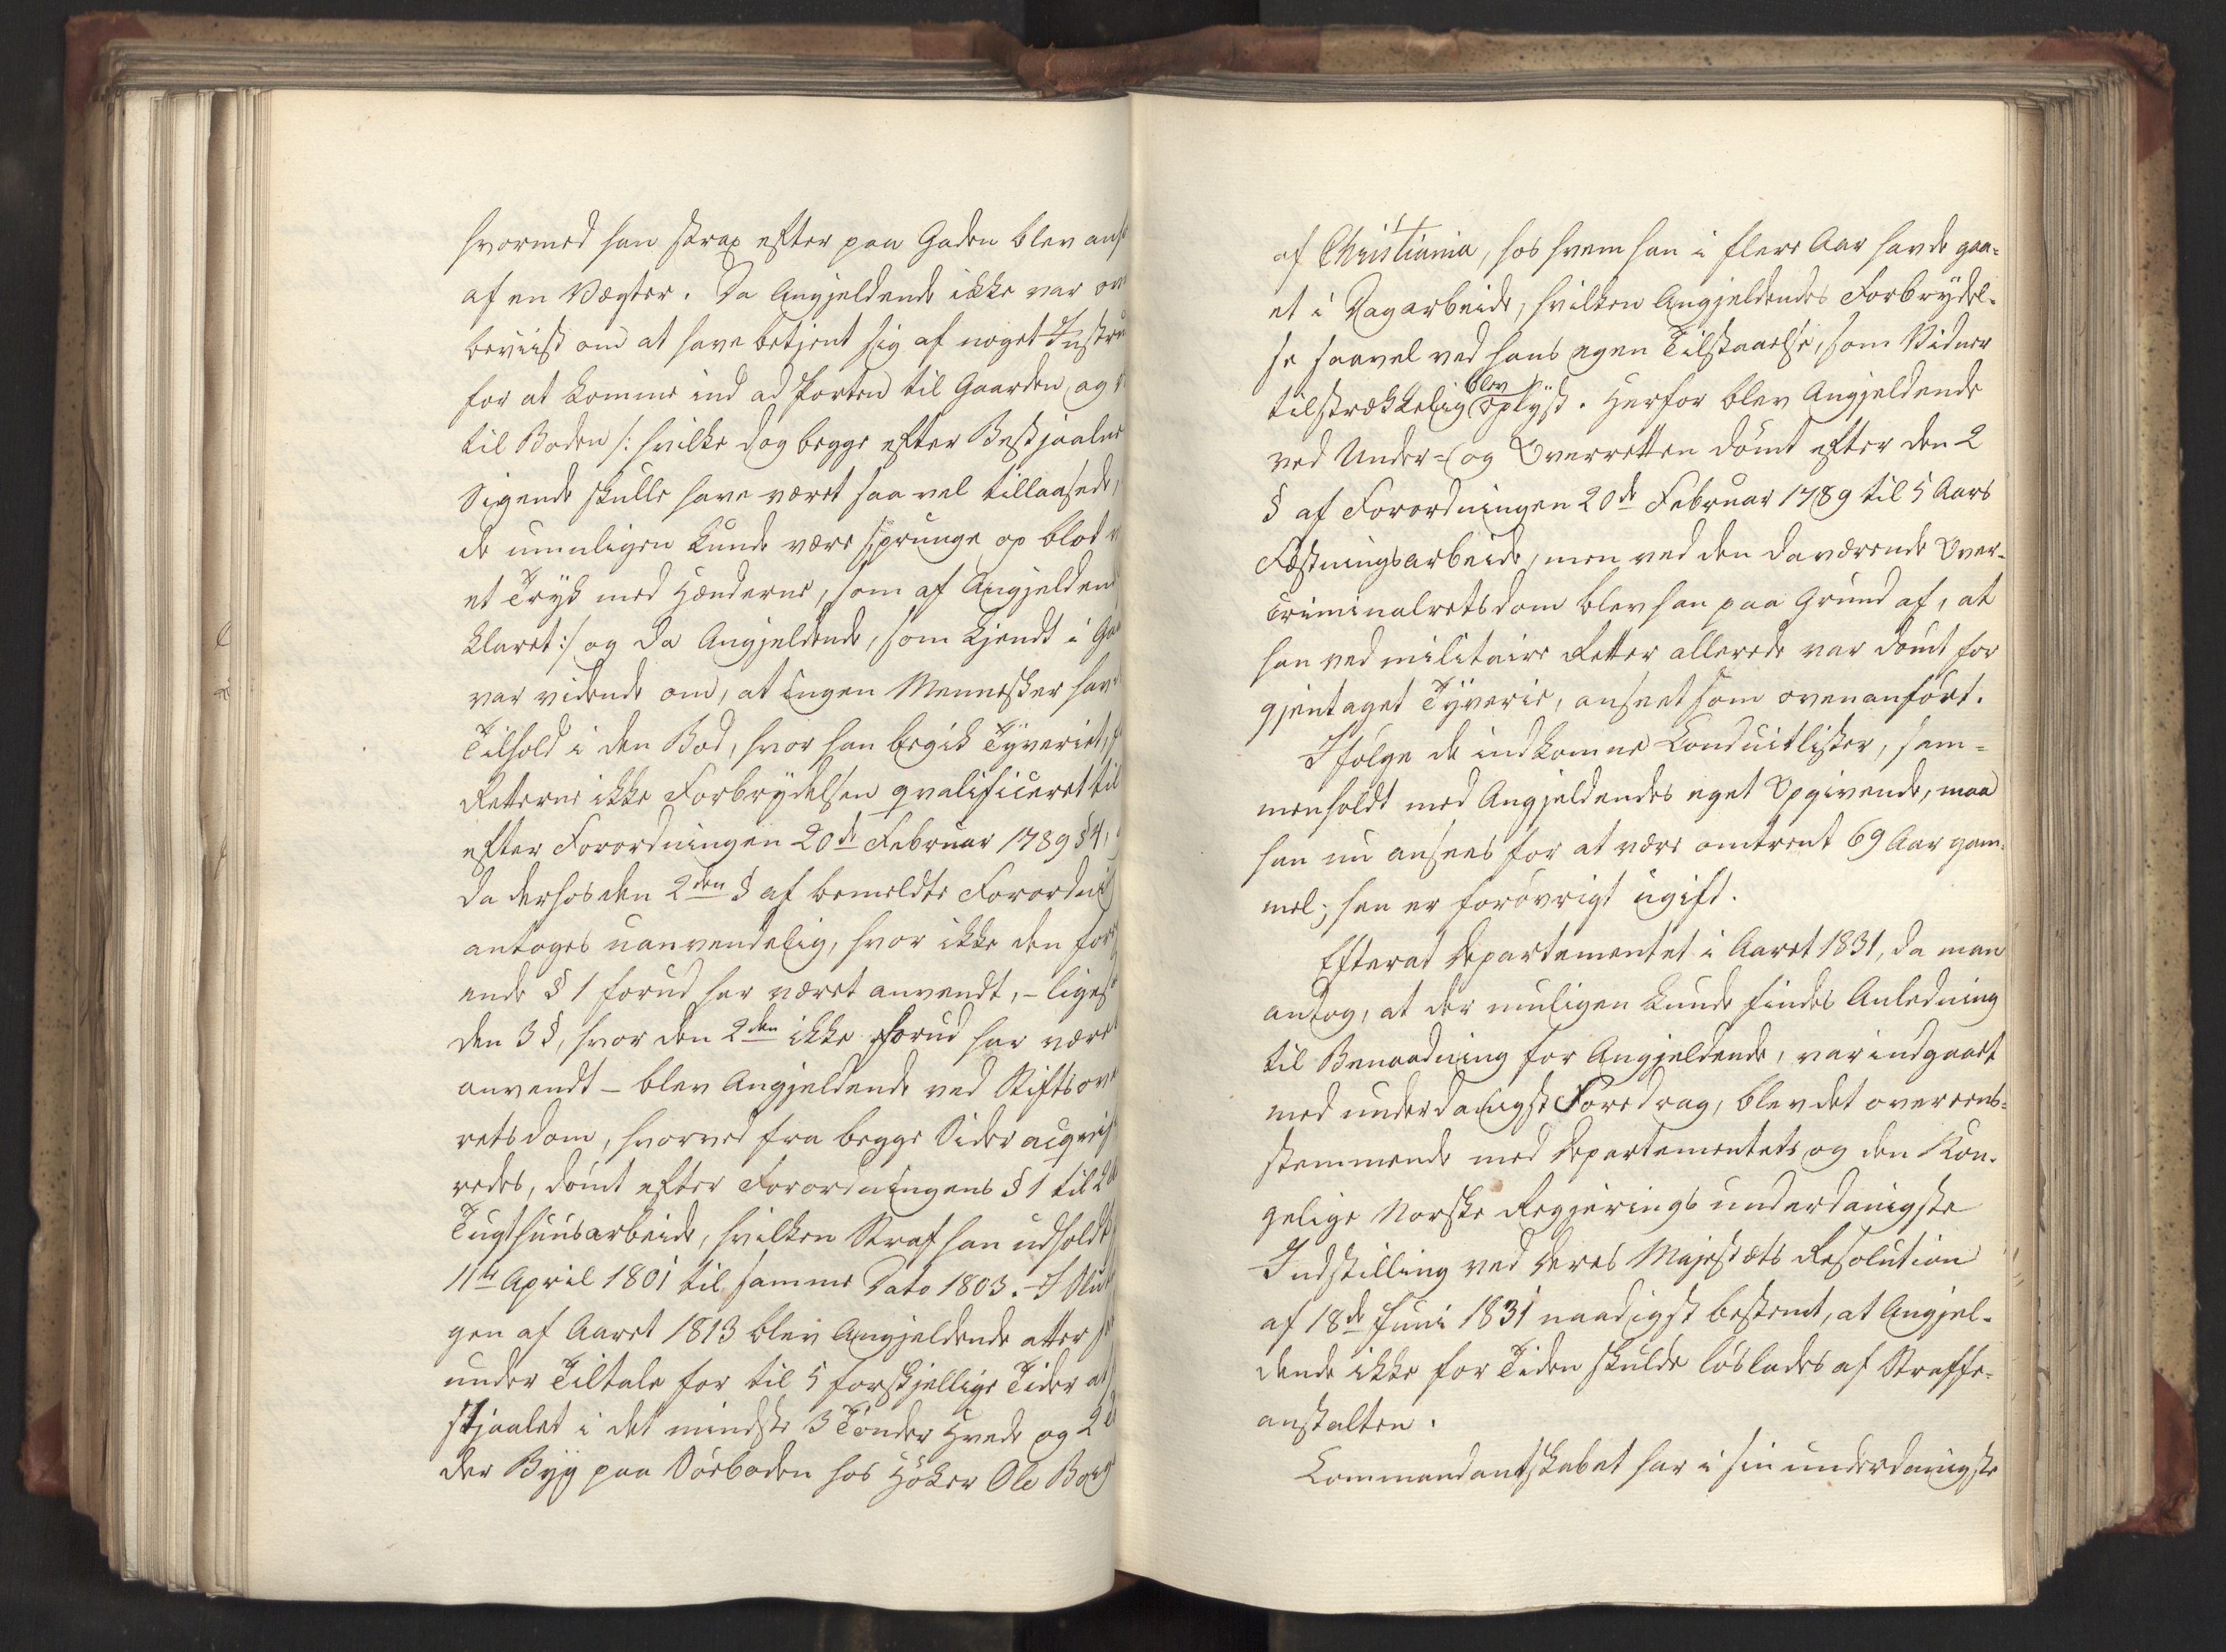 hvormed han strax efter paa Gaden blev
af en Vægter. Da Angjeldende ikke var
beviist om at have betjent sig af noget
for at komme ind ad Porten til Gaarden og
til Boden /: hvilke dog begge efter Bestjaalne
Sigende skulle have været saa vel tillaasede,
de umuligen kunde være sprunge op blot
et Tryk med Hænderne, som af Angjeldende
klaret :/ og da Angjeldende, som kjendt i
var vidende om, at ingen Mennesker havde
Tilhold i den Bod, hvor han begik Tyveriet,
Retterne ikke Forbrydelsen qvalificeret til
efter Forordningen 20de Februar 1789 § 4,
da derhos den 2den § af bemeldte
antoges uanvendelig, hvor ikke den
ende § 1 forud har været anvendt, –
den 3 §, hvor den 2den ikke forud har været
anvendt – blev Angjeldende ved
retsdom, hvorved fra begge Sider
redes, dömt efter Forordningens § 1 til 2
Tugthuusarbeide, hvilken Straf han udholdt
11te April 1801 til samme Dato 1803. – I
gen af Aaret 1813 blev Angjeldende atter
under Tiltale for til 5 forskjellige Tider at
stjaalet i det mindste 3 Tönder Hvede og 2
der Byg paa Söeboden hos Höker Ole
af Christiania, hos hvem han i flere Aar havde gaa-
et i Dagarbeide, hvilken Angjeldendes Forbrydel-
se saavel ved hans egen Tilstaaelse, som Vidner
tilstrækkelig blev oplyst. Herfor blev Angjeldende
ved Under- og Overretten dömt efter den 2
§ af Forordningen 20de Februar 1789 til 5 Aars
Fæstningsarbeide, men ved den daværende Over-
criminalretsdom blev han paa Grund af, at
han ved militaire Retter allerede var dömt for
gjentaget Tyverie, anseet som ovenanfört.
Ifölge de indkomne Conduitlister, sam-
menholdt med Angjeldendes eget Opgivende, maa
han nu ansees for at være omtrent 69 Aar gam-
mel; han er forövrigt ugift.
Efterat Departementet i Aaret 1831, da man
antog, at der muligen kunde findes Anledning
til Benaadning for Angjeldende, var indgaaet
med underdanigst Foredrag, blev det overeens-
stemmende med Departementets og den Kon-
gelige Norske Regjerings underdanigste
Indstilling ved Deres Majestæts Resolution
af 18de Juni 1831 naadigst bestemt, at Angjel-
dende ikke for Tiden skulde löslades af Straffe-
anstalten.
Commandantskabet har i sin underdanigste